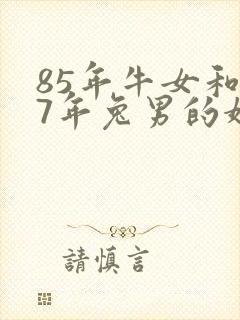 85年牛女和
7年兔男的
請慎言